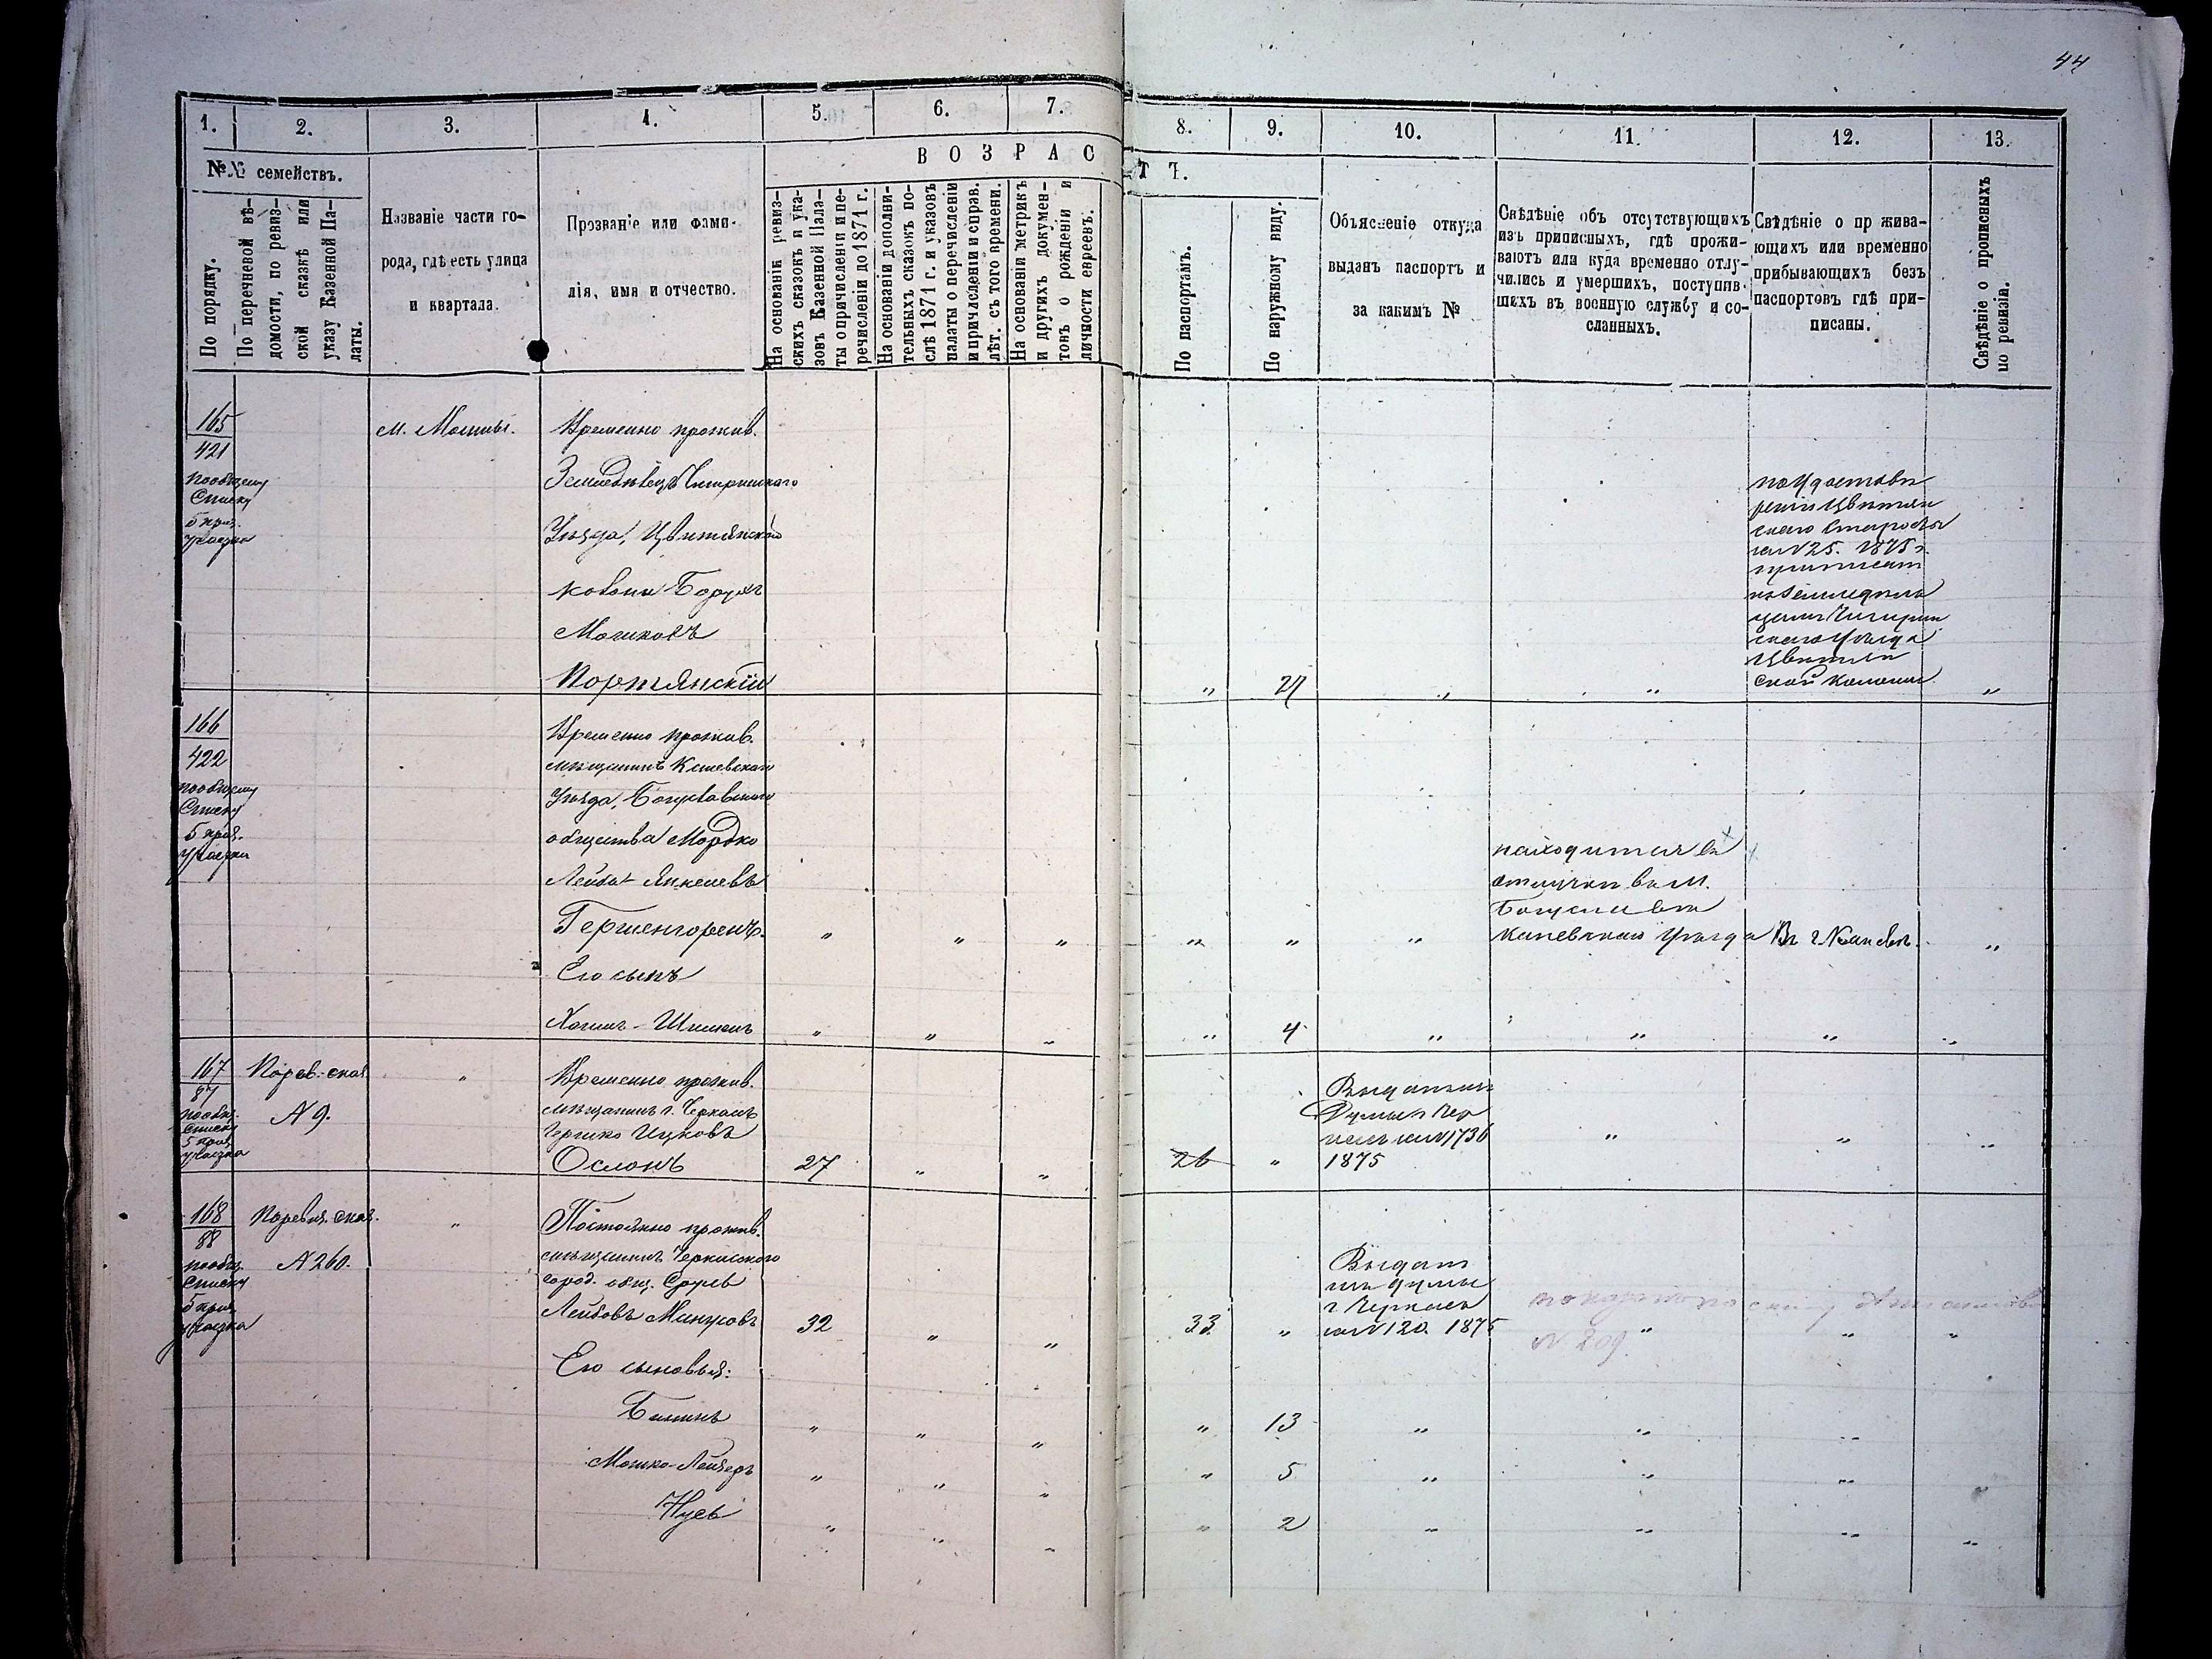 44
1.
2.
3.
4.
5.
6.
7.
8.
9.
10.
11.
12.
13.
№№ семействъ.
ВОЗРАС
ТЪ.
По порядку.
По перечневой вѣ-
домости, по ревиз-
ской сказкѣ или
указу Казенной Па-
латы.
Названіе части го-
рода, гдѣ есть улица
и квартала.
Прозваніе или фами-
лія, имя и отчество.
На основаніи ревиз-
скихъ сказокъ и ука-
зовъ Казенной Пала-
ты о причисленіи и пе-
речисленіи до 1871 г.
На основаніи дополни-
тельныхъ сказокъ по-
слѣ 1871 г. и указовъ
палаты о перечисленіи
и причисленіи и справ.
лѣт. съ того времени.
На основаніи метрикъ
и другихъ докумен-
товъ о рожденіи и
личности евреевъ.
По паспортамъ.
По наружному виду.
Объясненіе откуда
выданъ паспортъ и
за какимъ №
Свѣдѣніе объ отсутствующихъ
изъ приписныхъ, гдѣ прожи-
ваютъ или куда временно отлу-
чились и умершихъ, поступив-
шихъ въ военную службу и со-
сланныхъ.
Свѣдѣніе о пр жива-
ющихъ или временно
прибывающихъ безъ
паспортовъ гдѣ при-
писаны.
Свѣдѣніе о прописныхъ
по ревизіи.
165
421
пообщему
Списку
5 приз.
участка
м. Мошны.
Временно прожив.
Земледѣлецъ Чигиринскаго
Уѣзда, Цвитянской
колоніи Борух
Мошковъ
Портянскій
" 21 " "
скаго Старосты
за N 25. 1875 г.
приписан
Чигирин
скаго Уѣзда
Цвитян
ской колоніи "
166
422
пообщему
Списку
5 приз.
участка
Временно прожив.
мѣщанинъ Каневскаго
Уѣзда, Богуславскаго
общества Мордко
Лейба Янкелевъ
Гершенгоренъ. " " " " " "
находится въ
отлучки въ м.
Богуславѣ
Каневскаго Уѣзда Въ г. Каневѣ. "
Его сынъ
Хаимъ-Шимонъ " " " " 4 " " " "
167
87
пообщ.
Списку
5 приз.
участка
Корсв.-ская
N 9.
"
Временно прожив.
мѣщанинъ г. Черкасъ
Гершко Ицковъ
Ослонъ 27 " " 26 "
Выдан из
Думы г. Чер
касъ за N 1736
1875 " " "
168
88
пообщ.
Списку
5 приз.
участка
N 260.
"
Постоянно прожив.
мѣщанинъ Черкаского
город. общ. Сруль
Лейбовъ Манусовъ 32 " " 33 "
Выдан
изъ думы
г. Черкасъ
за N 120 1875
N 209. " " "
Его сыновья:
" " " " 13 " " "
Мошко-Лейзеръ " " " " 5 " " "
Нусь " " " " 2 " " " "